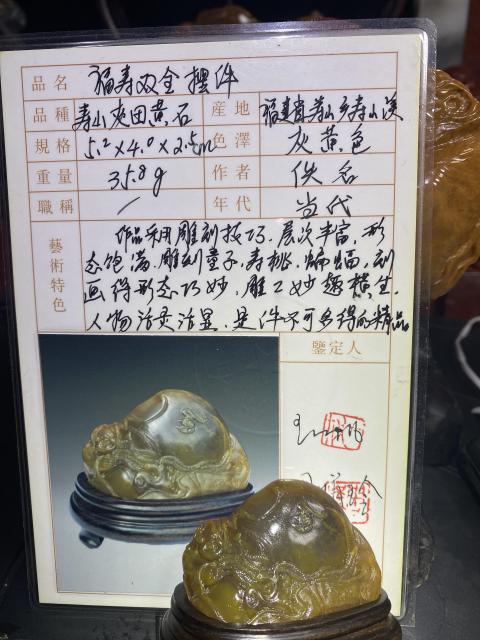 品名 福寿双全摆件
品種 寿山灰田黄石 産地 福建省寿山乡寿山溪
規格 5.2×4.0×2.5cm 色澤 灰黄色
重量 35.8g 作者 佚名
職稱 / 年代 当代
藝術特色
作品采用雕刻技巧、层次丰富,形
态饱满,雕刻童子、寿桃、蝙蝠,刻
画得形态巧妙,雕工妙趣横生,
人物活灵活显,是件不可多得的精品
鑒定人